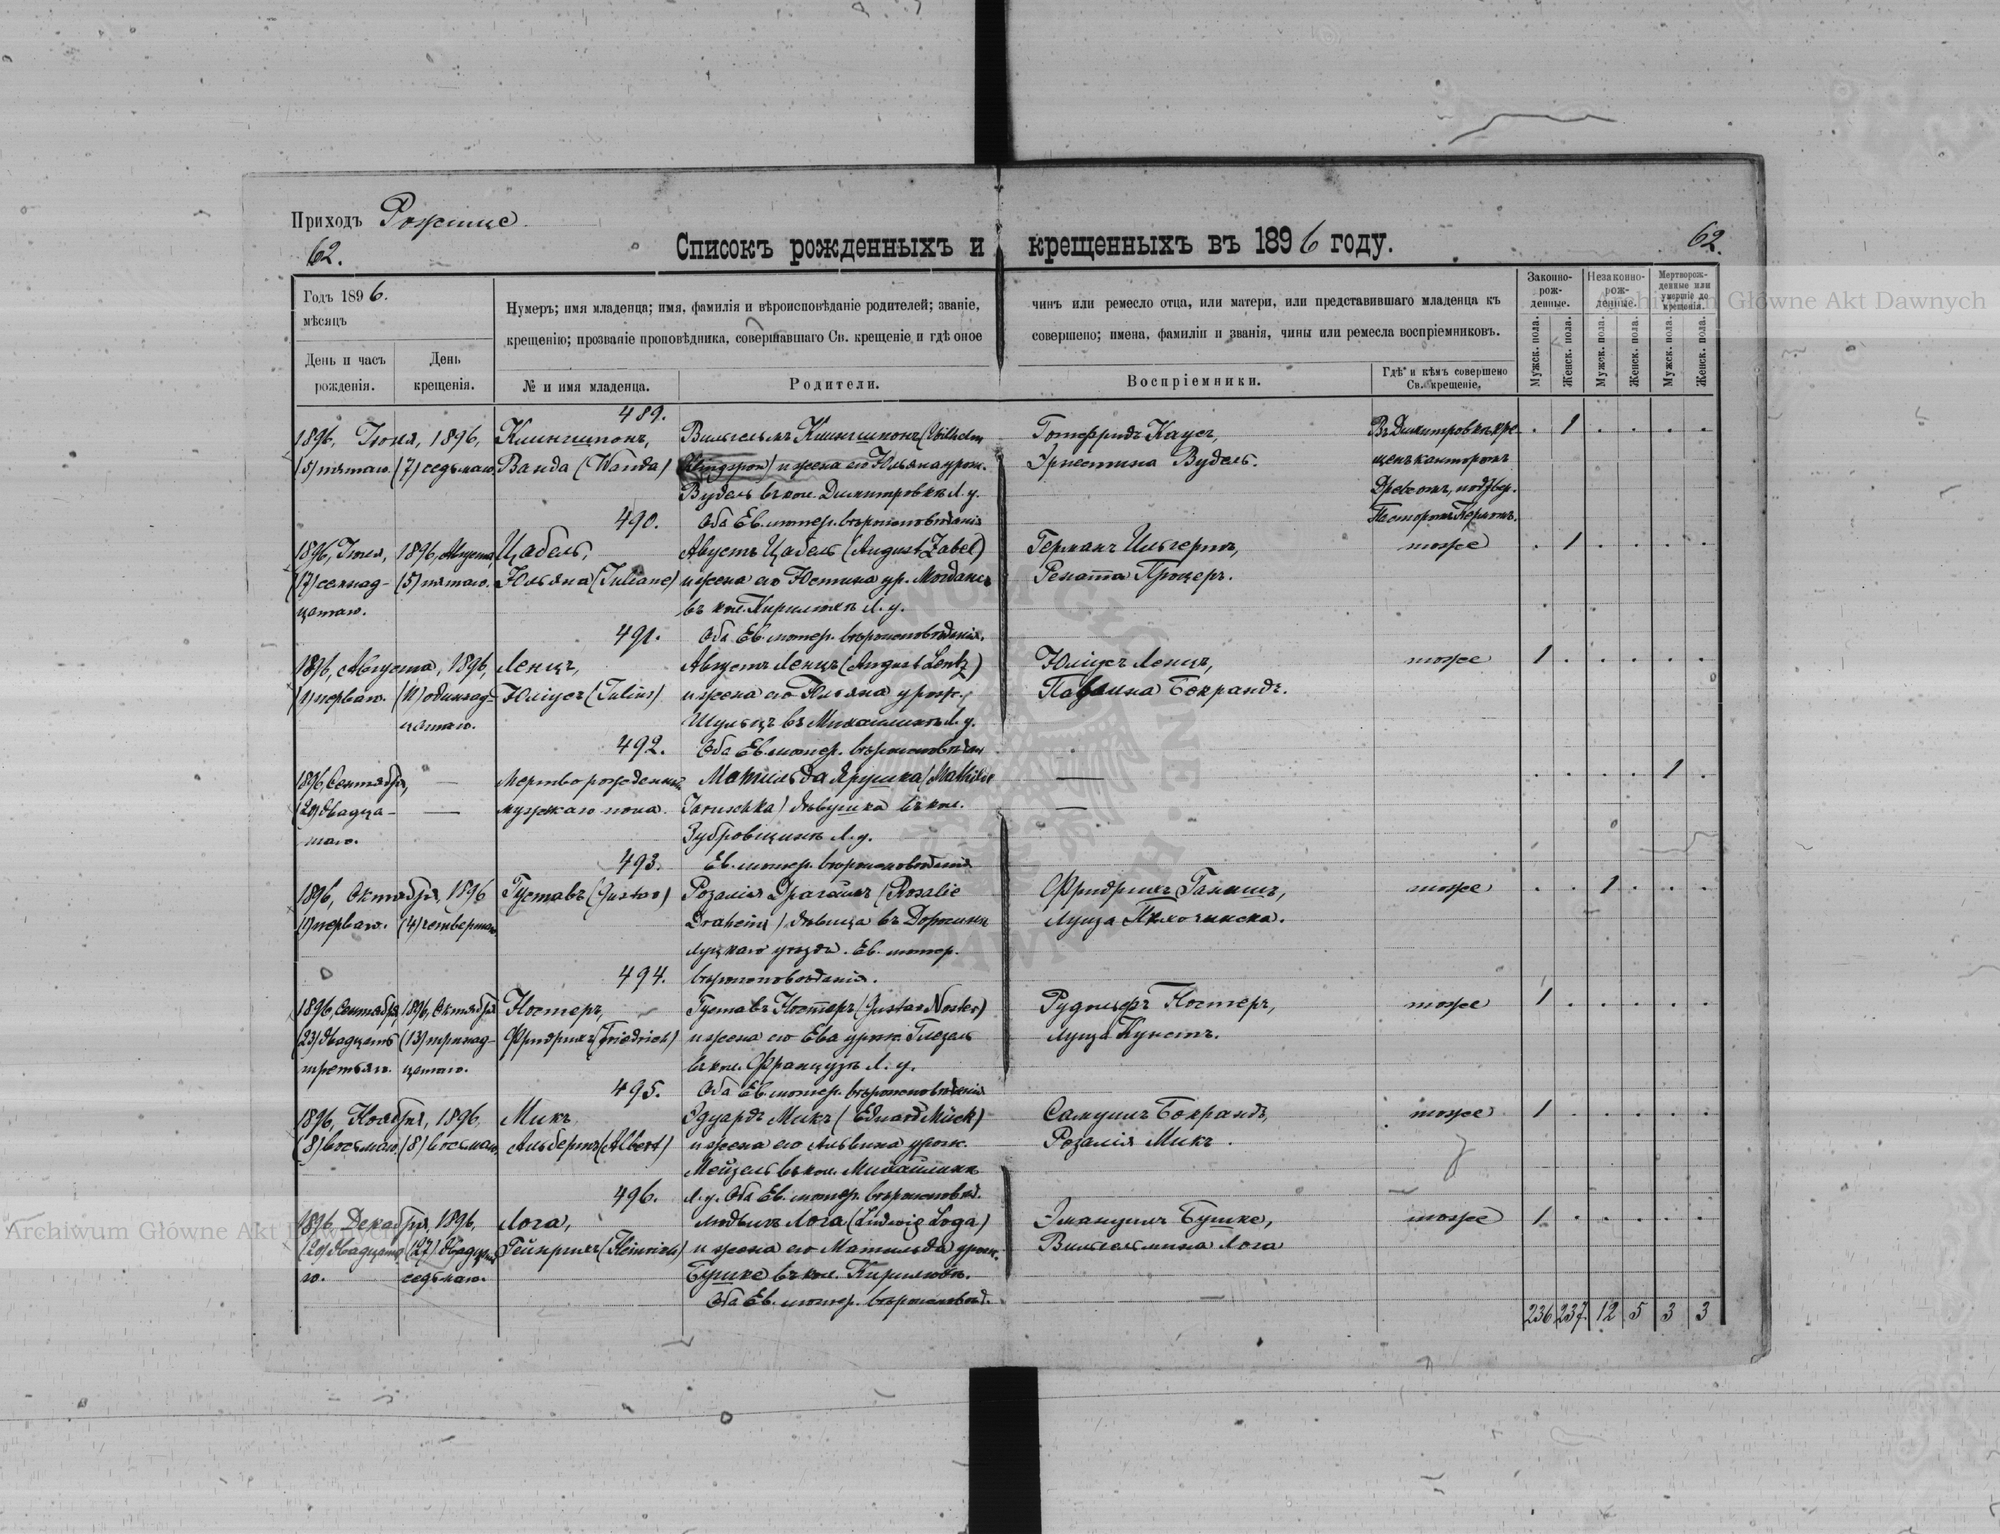 Приходъ Рожище.
62.
Списокъ рожденныхъ и крещенныхъ въ 1896 году.
62.
Годъ 1896.
мѣсяцъ
День и часъ рожденія.
День крещенія.
Нумеръ; имя младенца; имя, фамилія и вѣроисповѣданіе родителей; званіе, чинъ или ремесло отца, или матери, или представившаго младенца къ
крещенію; прозваніе проповѣдника, совершавшаго Св. крещеніе и гдѣ оное совершено; имена, фамиліи и званія, чины или ремесла воспріемниковъ.
№ и имя младенца.
Родители.
Воспріемники.
Гдѣ и кѣмъ совершено Св. крещеніе.
Законно-рож-денные.
Незаконно-рож-денные.
Мертворож-денные или умершіе до крещенія.
Мужск. пола.
Женск. пола.
Мужск. пола.
Женск. пола.
Мужск. пола.
Женск. пола.
489.
1896, Іюня, 1896, Клингшпонъ, Вильгельмъ Клингшпонъ (Wilhelm Готфридъ Каусъ, Въ Димитровкѣ кре- . 1 . . . .
(5) пятаго. (7) седьмаго. Ванда (Wanda) Klingspon) и жена его Юльяна урож. Эрнестина Вудель. щенъ канторомъ
Вудель въ кол. Димитровкѣ Л. у. подтвер.
490. Оба Ев. лютер. вѣроисповѣданія Пасторомъ
1896, Іюля, 1896, Августа, Цабель, Августъ Цабель (August Zabel) Германъ Ильгертъ, тоже . 1 . . . .
(17) семнад- (5) пятаго. Юльяна (Juliane) и жена его Юстина ур. Рената Процеръ.
цатаго. въ кол. Кирилловкѣ Л. у.
491. Оба Ев. лютер. вѣроисповѣданія.
1896, Августа, 1896, Ленцъ, Августъ Ленцъ (August Lentz) Юліусъ Ленцъ, тоже 1 . . . . .
(1) перваго. (11) одиннад- Юліусъ (Julius) и жена его Юльяна урож. Паулина Бокрандъ.
цатаго. Шульцъ въ Михайловкѣ Л. у.
492. Оба Ев. лютер. вѣроисповѣдан
1896, Сентября, — Мертворожденный Матильда Ярушка (Mathilde — . . . . 1 .
(20) двадца- — мужскаго пола. Jaruschka) дѣвушка въ кол. —
таго. Зубровщинѣ Л. у.
493. Ев. лютер. вѣроисповѣданія
1896, Октября, 1896 Густавъ (Gustav) Розалія Драгеймъ (Rosalie Фридрихъ тоже . . 1 . . .
(1) перваго. (4) четвертаго. Draheim) дѣвица въ Луиза
луцкаго уѣзда. Ев. лютер.
494. вѣроисповѣданія.
1896, Сентября, 1896, Октября Ностеръ, Густавъ Ностеръ (Gustav Noster) Рудольфъ Ностеръ, тоже 1 . . . . .
(23) двадцать (13) тринад- Фридрихъ (Friedrich) и жена его Ева урож. Глезель Луиза Кунстъ.
третьяго. цатаго. въ кол. Французъ Л. у.
495. Оба Ев. лютер. вѣроисповѣданія
1896, Ноября, 1896, Микъ Эдуардъ Микъ (Eduard Mück) Самуилъ Бокрандъ, тоже 1 . . . . .
(8) восьмаго. (8) восьмаго. Альбертъ (Albert) и жена его Альвина урож. Розалія Микъ.
Мейзель въ кол. Михайловкѣ
496. Л. у. Оба Ев. лютер. вѣроисповѣд.
1896, Декабря, 1896, Лога, Людвикъ Лога (Ludwig Loga) Эмануилъ Бушке, тоже 1 . . . . .
(20) двадцата- (27) двадцать Гейнрихъ (Heinrich) и жена его Матильда урож. Вильгельмина Лога
го. седьмаго. Бушке въ кол. Кирилловкѣ.
Оба Ев. лютер. вѣроисповѣд.
236 237 12 5 3 3
Archiwum Główne Akt Dawnych
Archiwum Główne Akt Dawnych